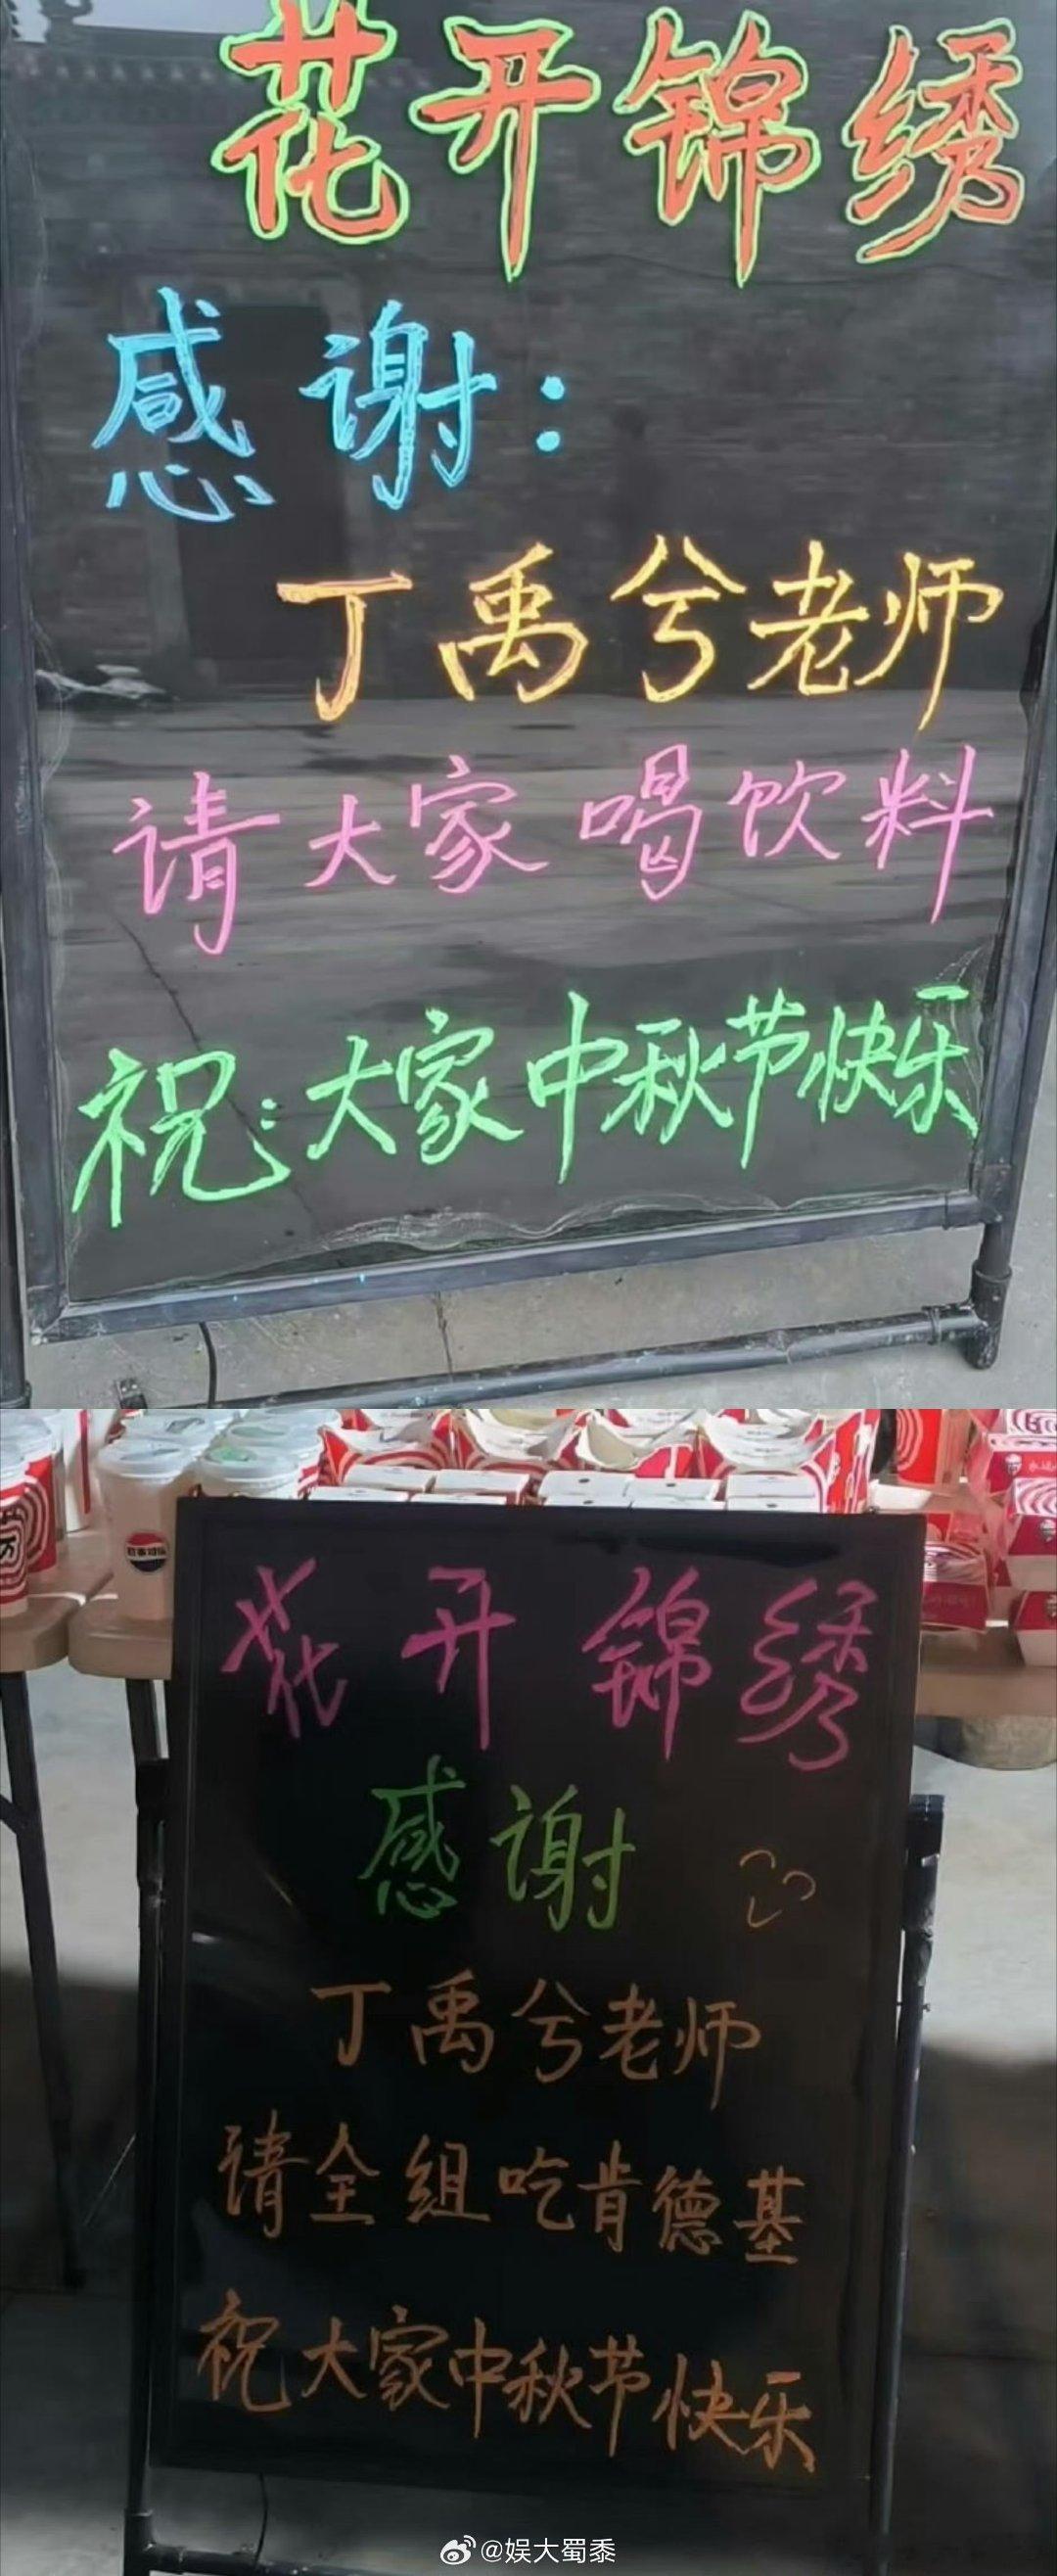 花开锦绣
感谢:
丁禹兮老师
请大家喝饮料
祝:大家中秋节快乐
百事可乐
花开锦绣
感谢
丁禹兮老师
请全组吃肯德基
祝大家中秋节快乐
@娱大蜀黍